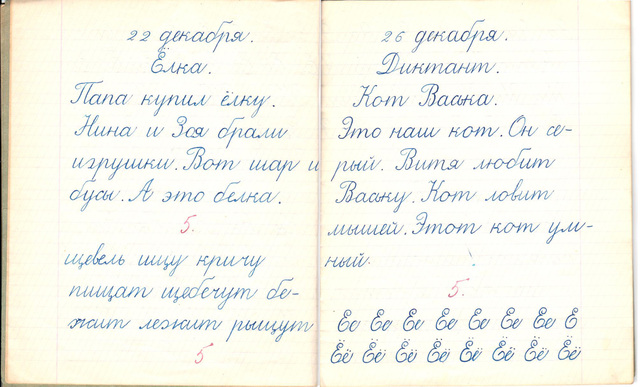 22 декабря.
Ёлка.
Папа купил ёлку.
Нина и Зоя брали
игрушки. Вот шар и
бусы. А это белка.
5.
щевель ищу кричу
пищат щебечут бе-
жит лежит рыщут
5
26 декабря.
Диктант.
Кот Васька.
Это наш кот. Он се-
рый. Витя любит
Ваську. Кот ловит
мышей. Этот кот ум-
ный.
5.
Ее Ее Ее Ее Ее Ее Ее Е
Ёё Ёё Ёё Ёё Ёё Ёё Ёё Ёё